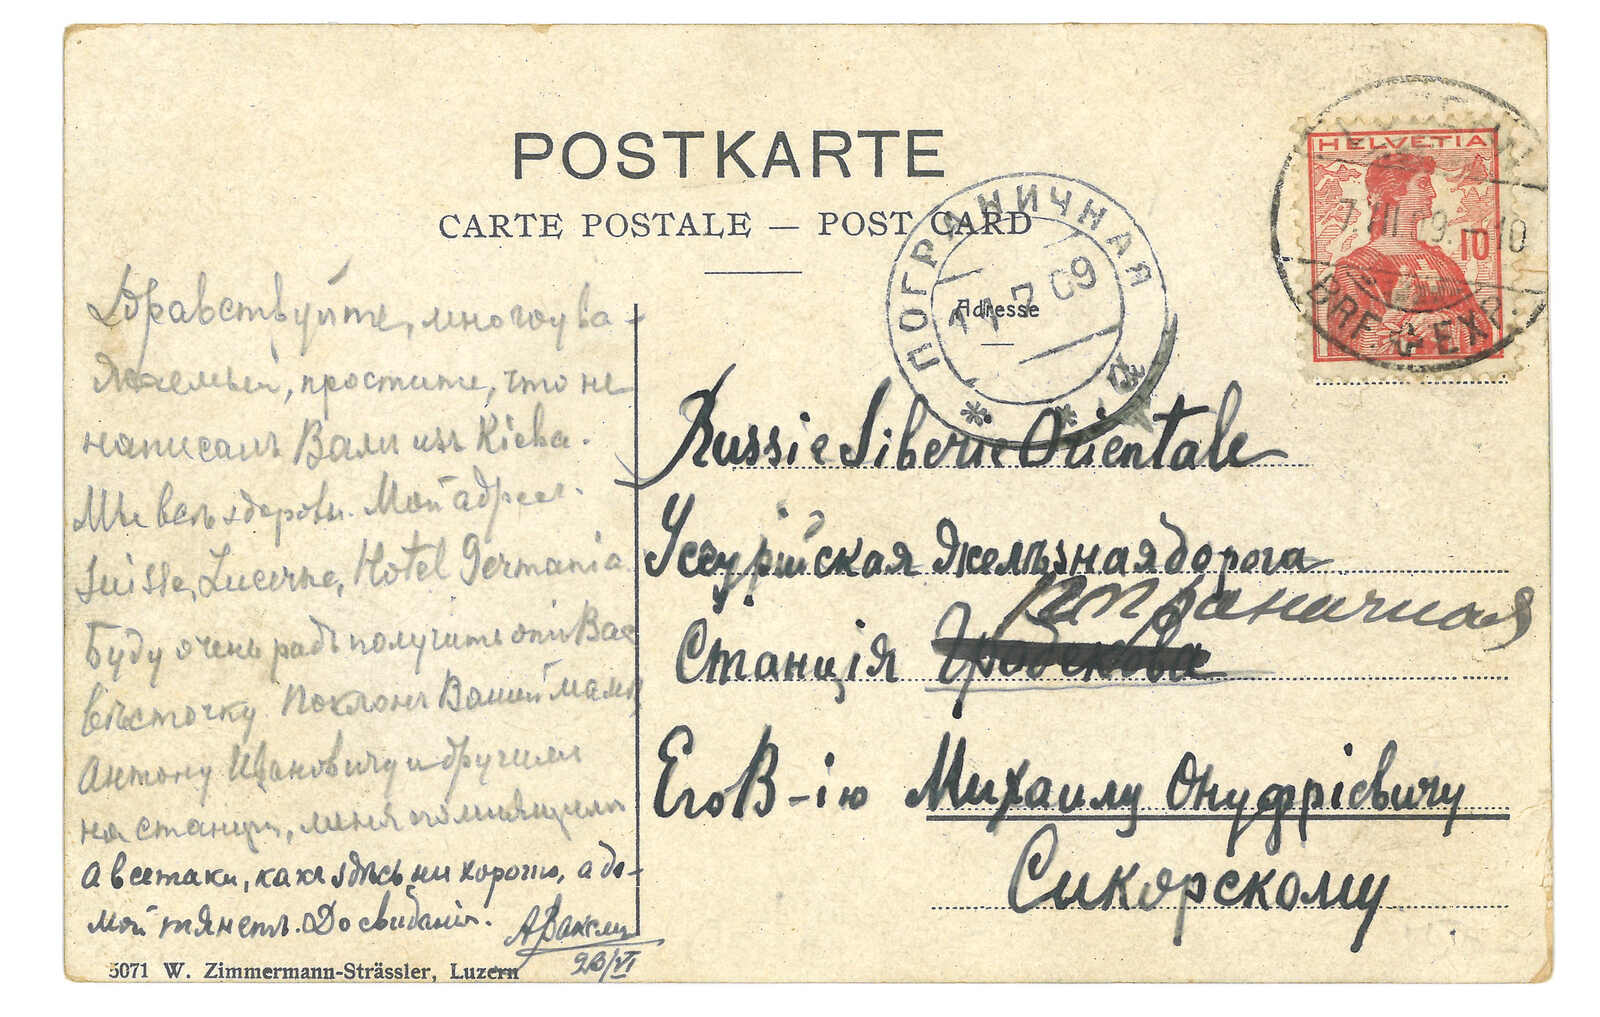 POSTKARTE
CARTE POSTALE — POST CARD
Adresse
HELVETIA
10
7.VII.09.-10
BRF. EXP.
ПОГРАНИЧНАЯ
11 7 09
Здравствуйте, многоува-
жаемый, простите, что не
написалъ Вамъ изъ Кіева.
Мы всѣ здоровы. Мой адрес.
Suisse, Lucerne, Hotel Germania
Буду очень радъ получить отъ Вас
вѣсточку. Поклонъ Вашей мамѣ,
Антону Ивановичу и другимъ
на станціи, меня помнящимъ
А всетаки, какъ здѣсь ни хорошо, а до-
мой тянетъ. До свиданія.
23/VI
Russie Siberie Orientale
Уссурійская желѣзная дорога
Пограничная
Станція Гродекова
Его В-ію Михаилу Онуфріевичу
Сикорскому
5071 W. Zimmermann-Strässler, Luzern